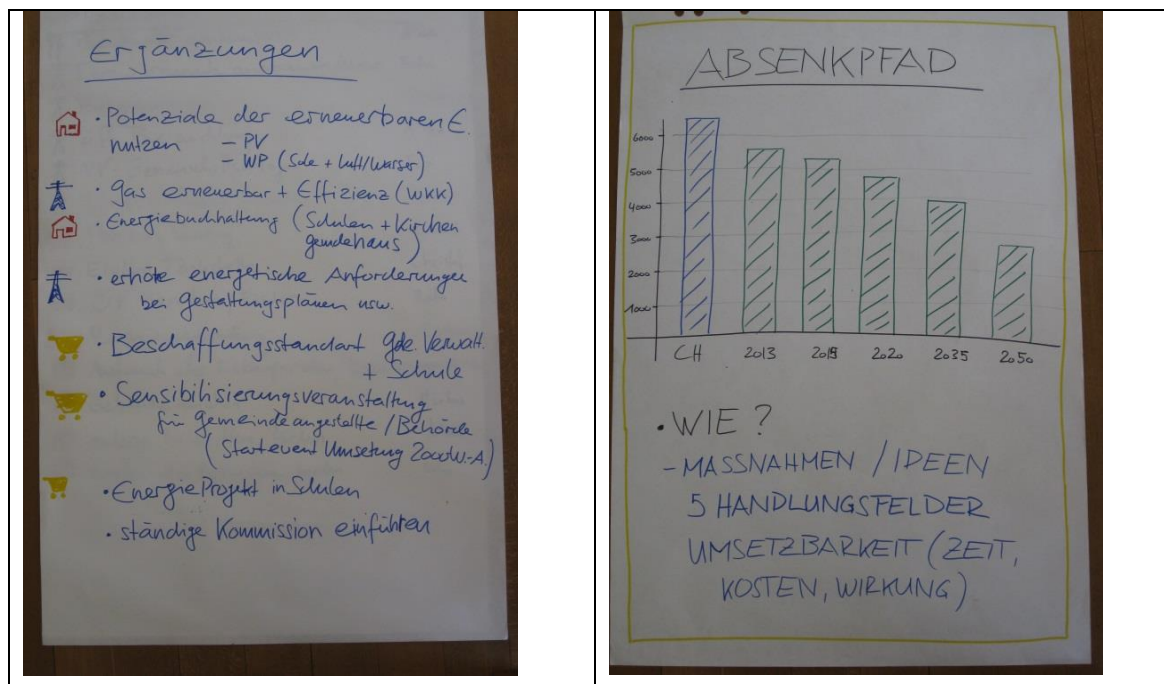 Ergänzungen
• Potenziale der erneuerbaren E.
nutzen – PV
– WP (Sole + Luft/Wasser)
• Gas erneuerbar + Effizienz (WKK)
• Energiebuchhaltung (Schulen + Kirchen
gemdehaus)
• erhöte energetische Anforderungen
bei Gestaltungsplänen usw.
• Beschaffungsstandart Gde. Verwalt.
+ Schule
• Sensibilisierungsveranstaltung
für Gemeindeangestellte / Behörde
(Startevent Umsetzung 2000W.-A.)
• EnergieProjekt in Schulen
• ständige Kommission einführen
ABSENKPFAD
6000
5000
4000
3000
2000
1000
CH 2013 2020 2035 2050
• WIE?
– MASSNAHMEN / IDEEN
5 HANDLUNGSFELDER
UMSETZBARKEIT (ZEIT,
KOSTEN, WIRKUNG)